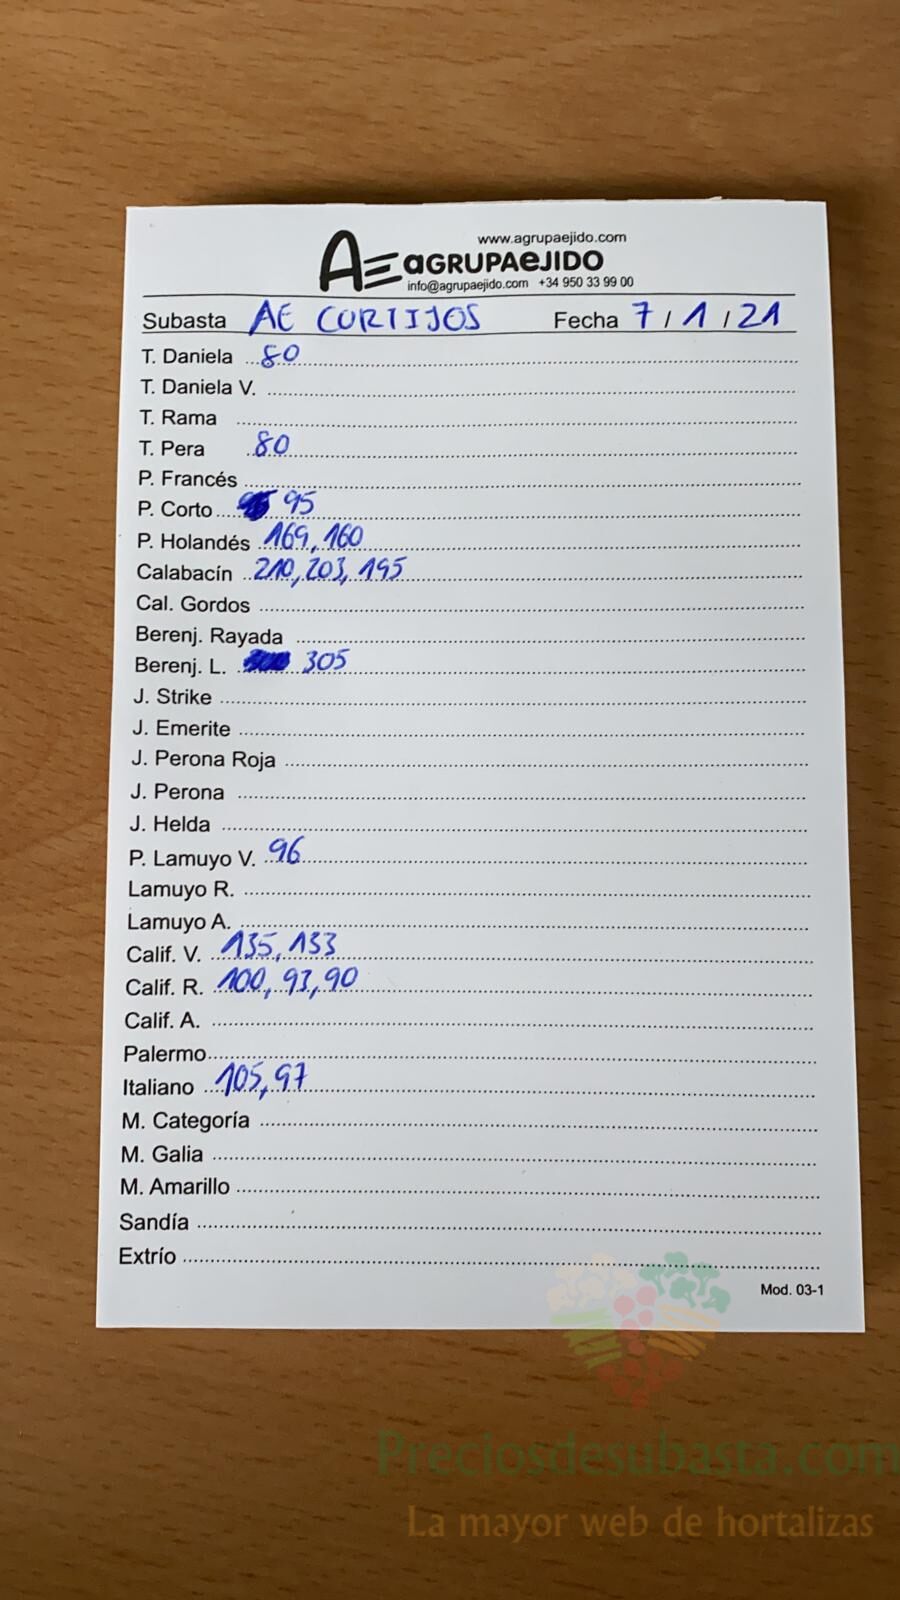 www.agrupaejido.com
AE aGRUPAeJIDO
info@agrupaejido.com +34 950 33 99 00
Subasta AE CORTIJOS Fecha 7 / 1 / 21
T. Daniela 80
T. Daniela V.
T. Rama
T. Pera 80
P. Francés
P. Corto 95
P. Holandés 169, 160
Calabacín 210, 203, 195
Cal. Gordos
Berenj. Rayada
Berenj. L. 305
J. Strike
J. Emerite
J. Perona Roja
J. Perona
J. Helda
P. Lamuyo V. 96
Lamuyo R.
Lamuyo A.
Calif. V. 135, 133
Calif. R. 100, 93, 90
Calif. A.
Palermo
Italiano 105, 97
M. Categoría
M. Galia
M. Amarillo
Sandía
Extrío
Mod. 03-1
Preciosdesubasta.com
La mayor web de hortalizas